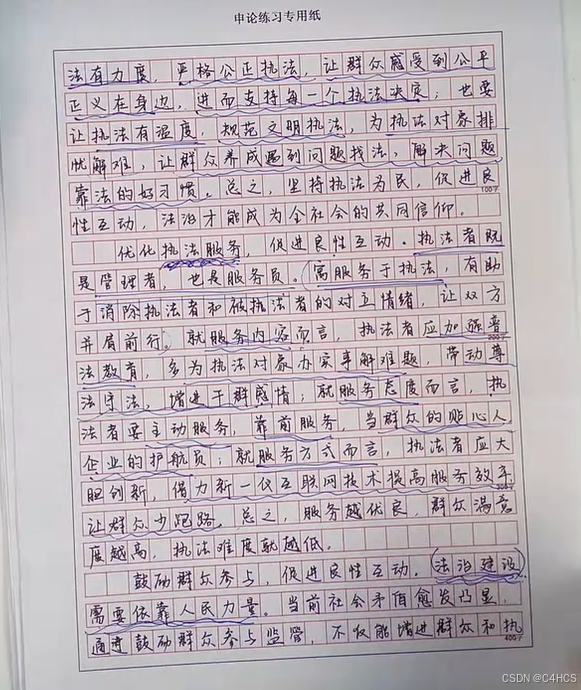 申论练习专用纸
法有力度，严格公正执法，让群众感受到公平
正义在身边，进而支持每一个执法决定；也要
让执法有温度，规范文明执法，为执法对象排
忧解难，让群众养成遇到问题找法，解决问题
靠法的好习惯。总之，坚持执法为民，促进良
100字
性互动，法治才能成为全社会的共同信仰。
优化执法服务，促进良性互动。执法者既
是管理者，也是服务员。寓服务于执法，有助
于消除执法者和被执法者的对立情绪，让双方
并肩前行。就服务内容而言，执法者应加强普
200字
法教育，多为执法对象办实事解难题，带动尊
法守法，增进干群感情；就服务态度而言，执
法者要主动服务，靠前服务，当群众的贴心人
企业的护航员；就服务方式而言，执法者应大
胆创新，借力新一代互联网技术提高服务效率
300字
让群众少跑路。总之，服务越优良，群众满意
度越高，执法难度就越低。
鼓励群众参与，促进良性互动。法治建设
需要依靠人民力量。当前社会矛盾愈发凸显，
通过鼓励群众参与监管，不仅能增进群众和执
400字
CSDN @C4HCS